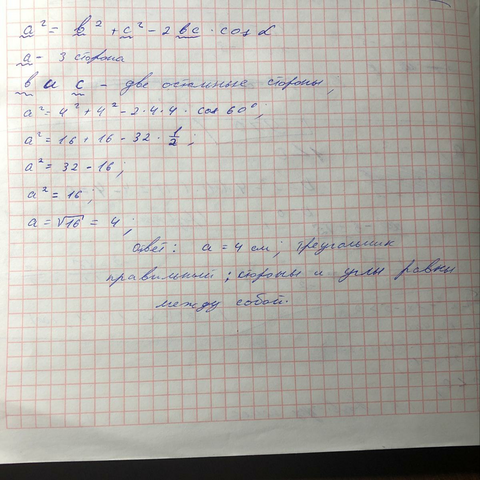 a² = b² + c² - 2bc · cos α
a - 3 сторона
b и c - две остальные стороны,
a² = 4² + 4² - 2·4·4 · cos 60°;
a² = 16 + 16 - 32 · 1/2;
a² = 32 - 16;
a² = 16;
a = √16 = 4;
Ответ: a = 4 см; треугольник
правильный; стороны и углы равны
между собой.